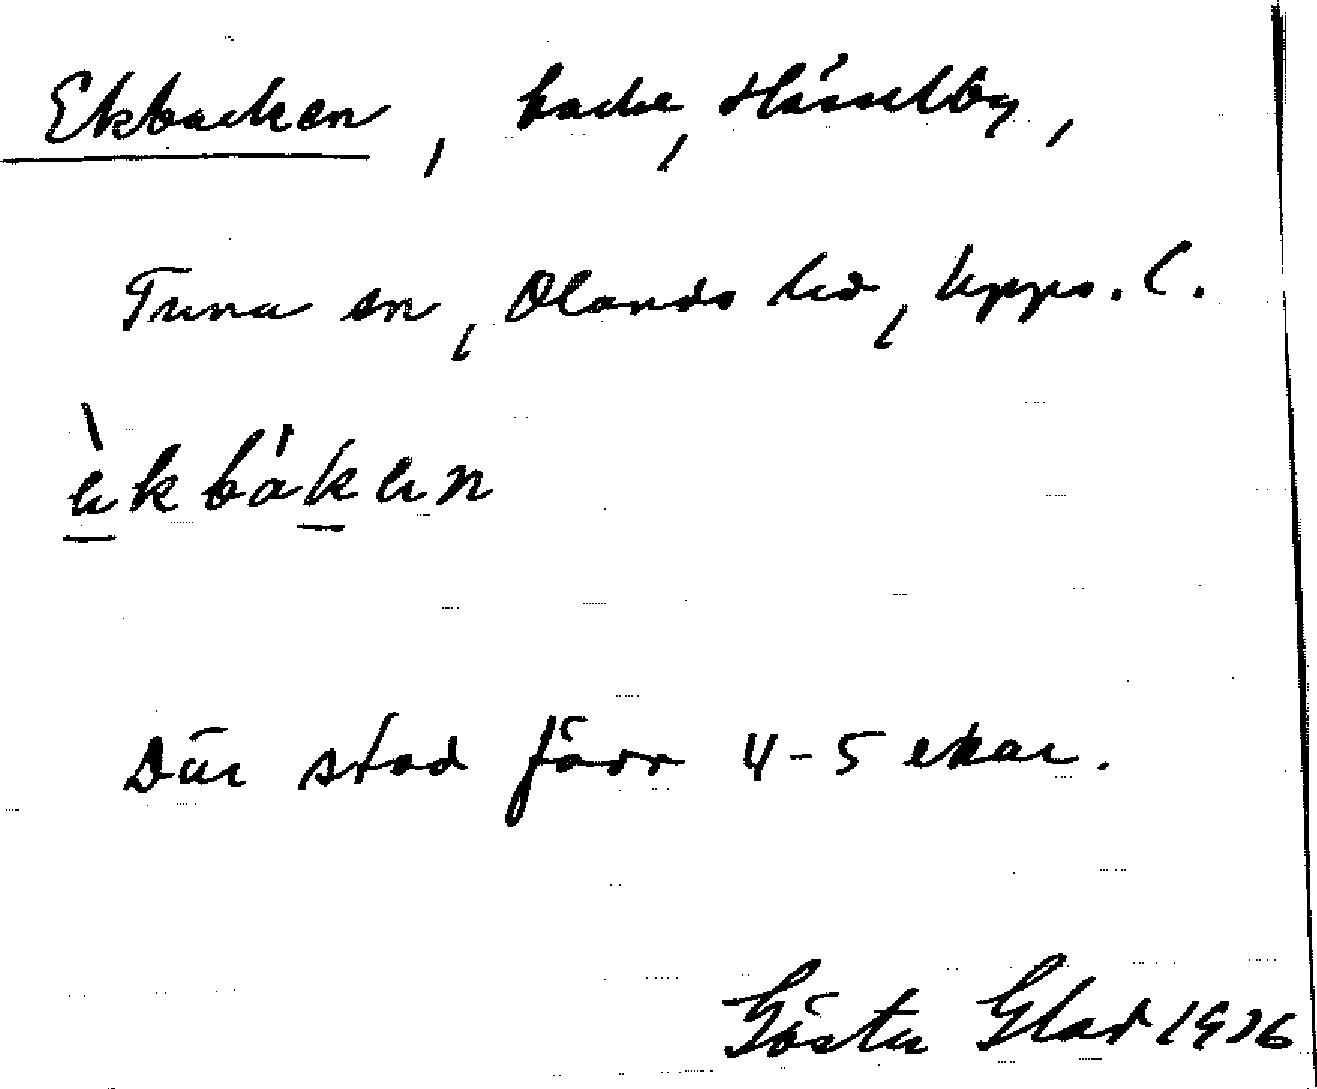 Ekbacken, backe, Hässelby,
Tuna sn, Olands hd, Upps. l.
èkbáken
Där stod förr 4-5 ekar.
Gösta Glad 1936